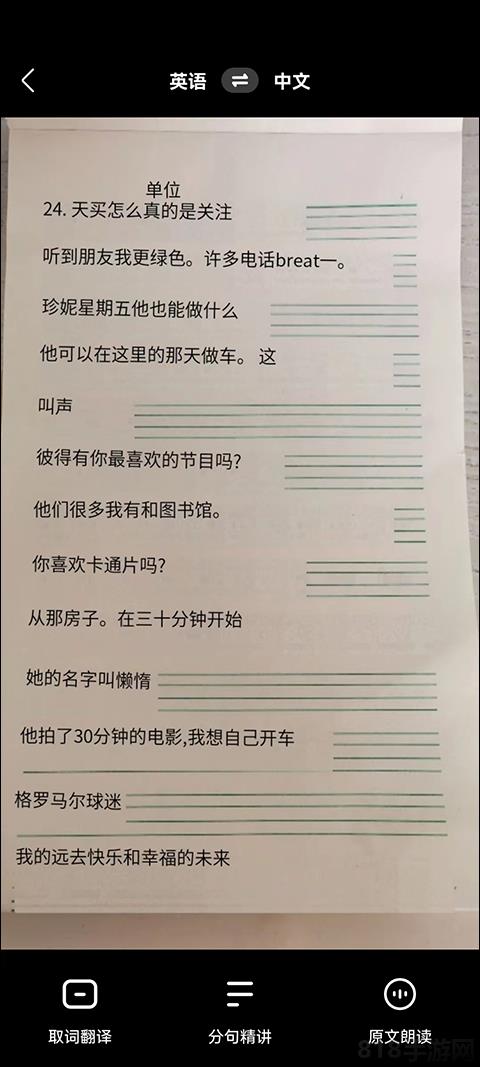 英语 中文
单位
24. 天买怎么真的是关注
听到朋友我更绿色。许多电话breat一。
珍妮星期五他也能做什么
他可以在这里的那天做车。 这
叫声
彼得有你最喜欢的节目吗?
他们很多我有和图书馆。
你喜欢卡通片吗?
从那房子。在三十分钟开始
她的名字叫懒惰
他拍了30分钟的电影,我想自己开车
格罗马尔球迷
我的远去快乐和幸福的未来
取词翻译 分句精讲 原文朗读
818手游网